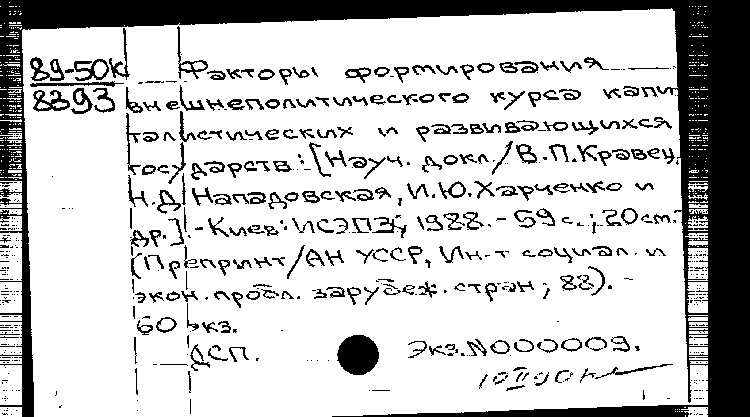 89-50К
8393
Факторы формирования
внешнеполитического курса капи-
талистических и развивающихся
государств: [Науч. докл./В.П.Кравец,
Н.Д. Нападовская, И.Ю.Харченко и
др.]. - Киев: ИСЭПЗ, 1988. - 59 с.; 20 см. -
(Препринт/АН УССР, Ин-т социал. и
экон. пробл. зарубеж. стран; 88). -
60 экз.
ДСП. Экз.N000009.